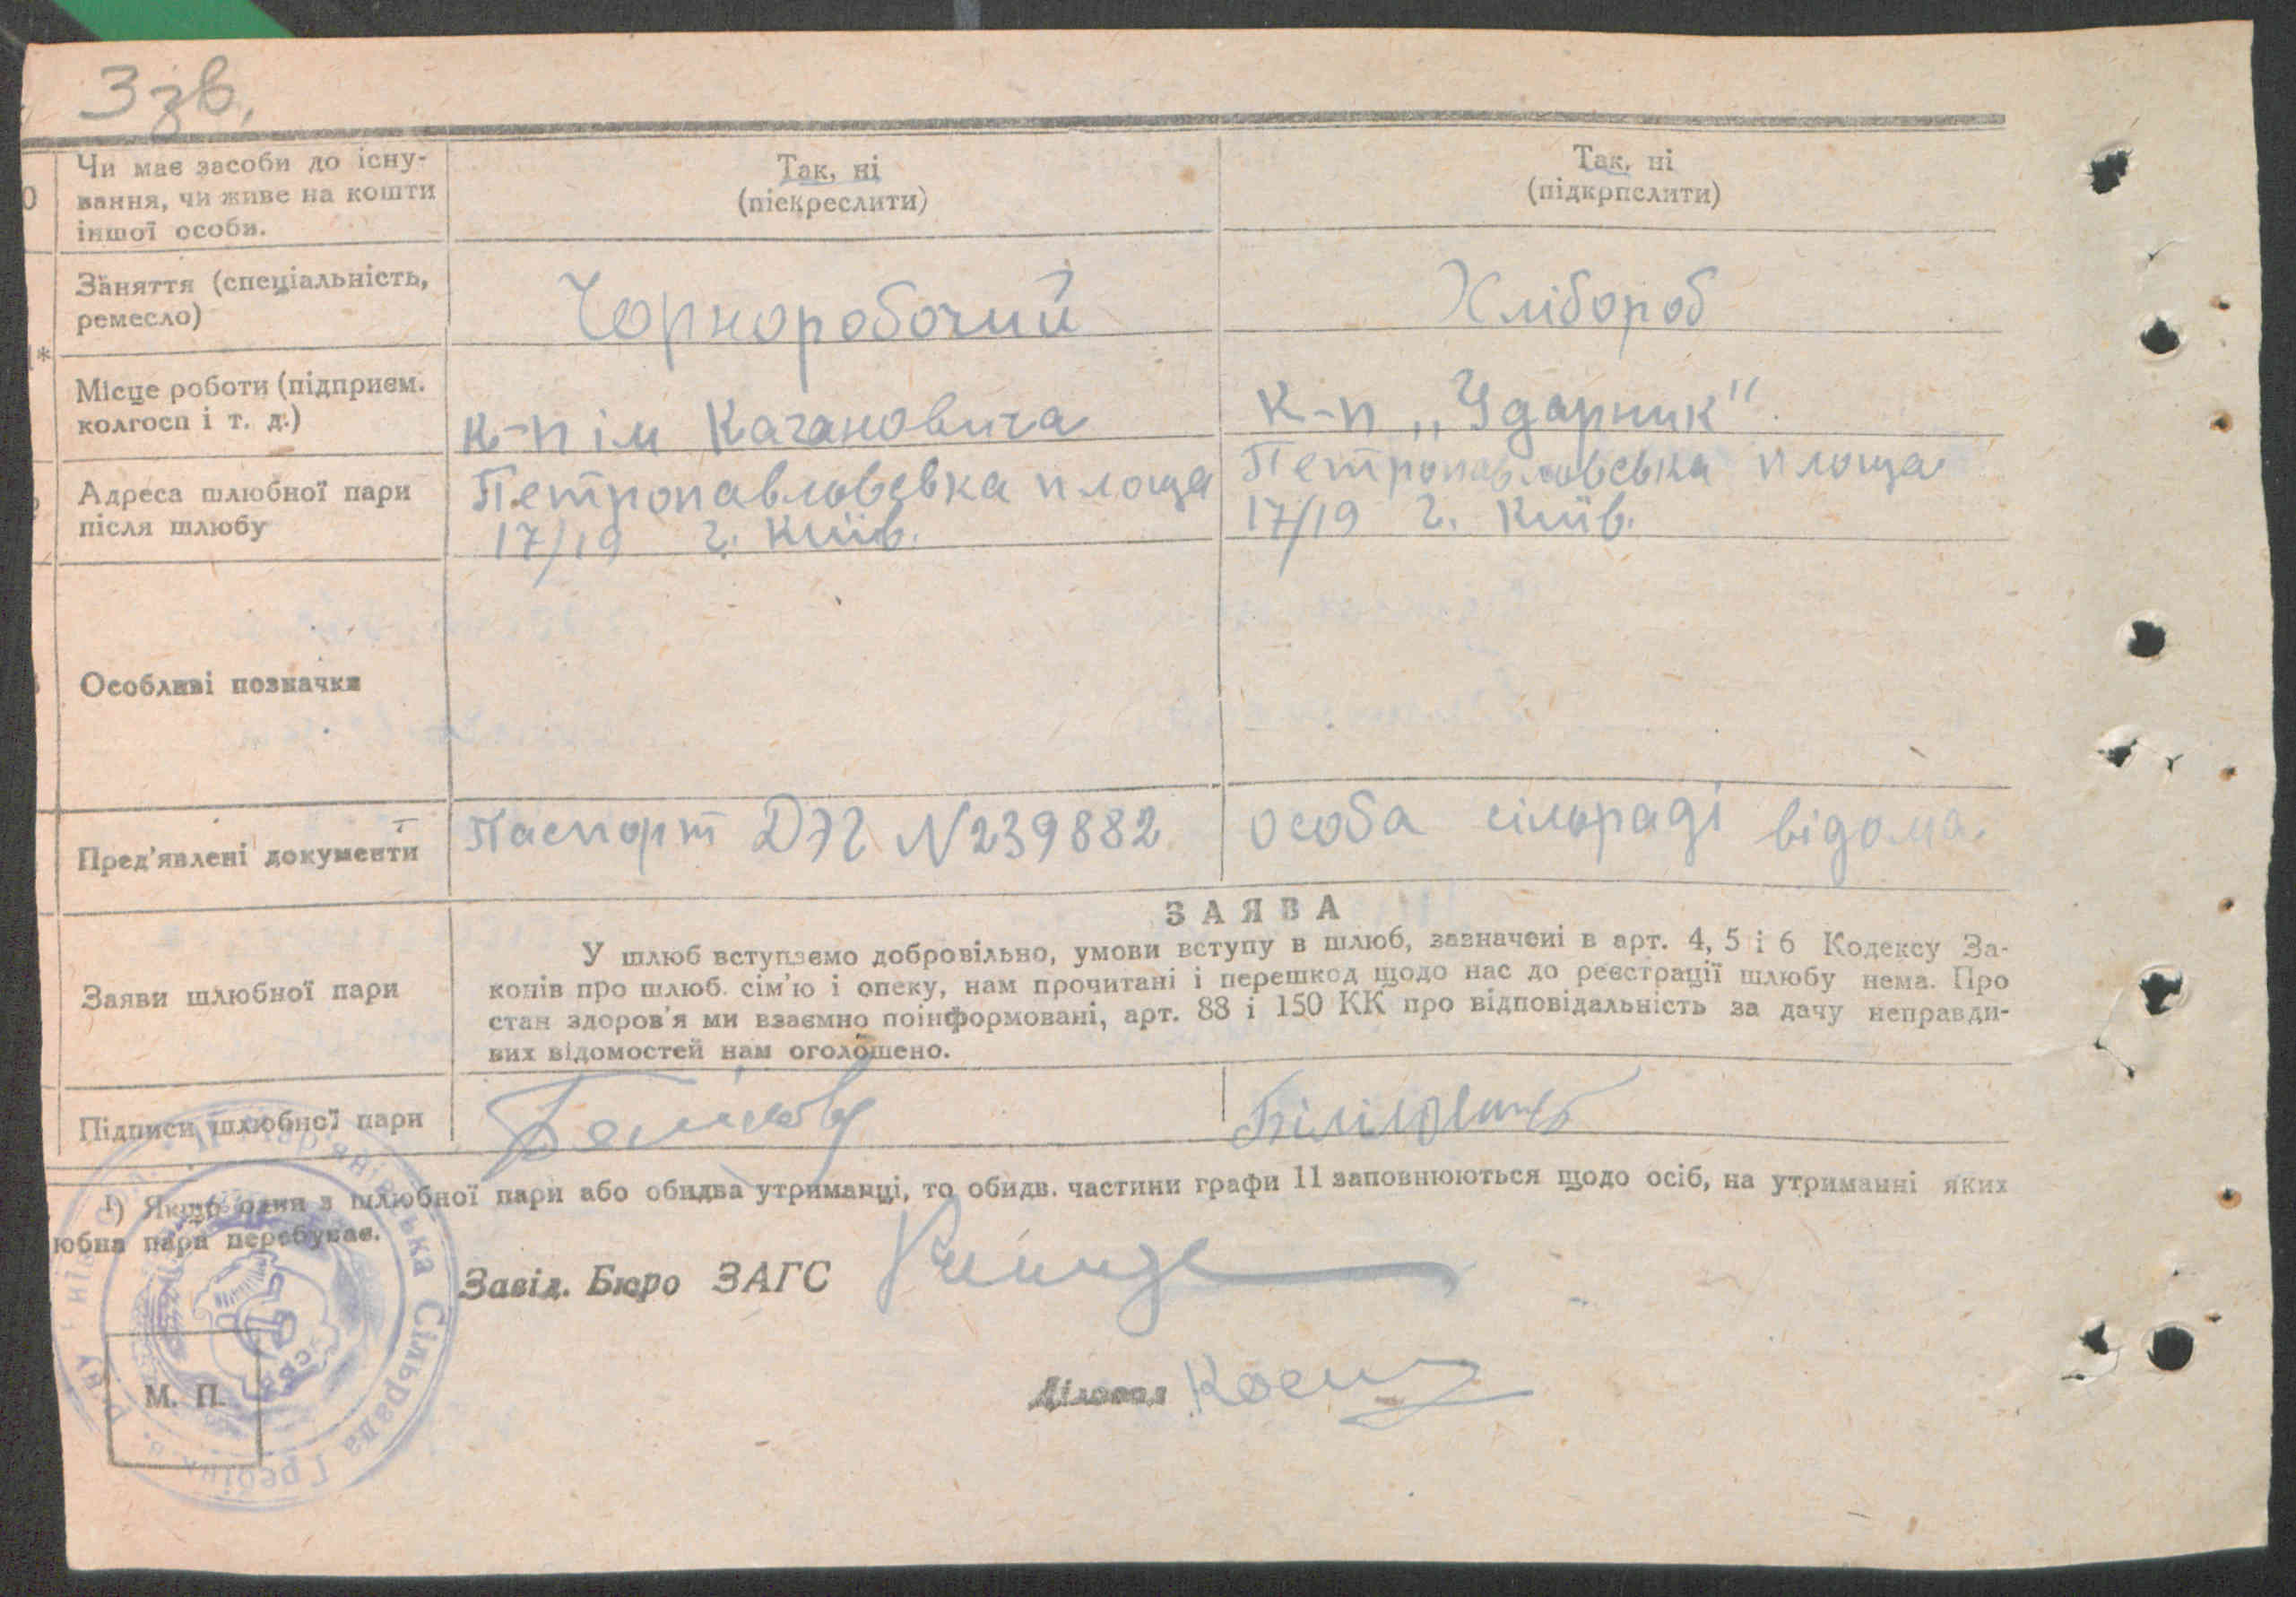 3 зв.
Чи має засоби до існу-
вання, чи живе на кошти
іншої особи.
Так, ні
(піекреслити)
Так, ні
(підкрпслити)
Заняття (спеціальність,
ремесло)
Чорноробочий
Хлібороб
Місце роботи (підприєм.
колгосп і т. д.)
к-п ім Кагановича
К-п „Ударник"
Адреса шлюбної пари
після шлюбу
Петропавловська площа
17/19 г. Київ.
Петропавловська площа
17/19 г. Київ.
Особливі позначки
Пред'явлені документи
Паспорт № 239882
особа сільраді відома.
ЗАЯВА
Заяви шлюбної пари
У шлюб вступаємо добровільно, умови вступу в шлюб, зазначені в арт. 4, 5 і 6 Кодексу За-
конів про шлюб. сім'ю і опеку, нам прочитані і перешкод щодо нас до реєстрації шлюбу нема. Про
стан здоров'я ми взаємно поінформовані, арт. 88 і 150 КК про відповідальність за дачу неправди-
вих відомостей нам оголошено.
Підписи шлюбної пари
¹) Якщо один з шлюбної пари або обидва утриманці, то обидв. частини графи 11 заповнюються щодо осіб, на утриманні яких
юбна пара перебуває.
Завід. Бюро ЗАГС
Діловод
М. П.
Сільрада